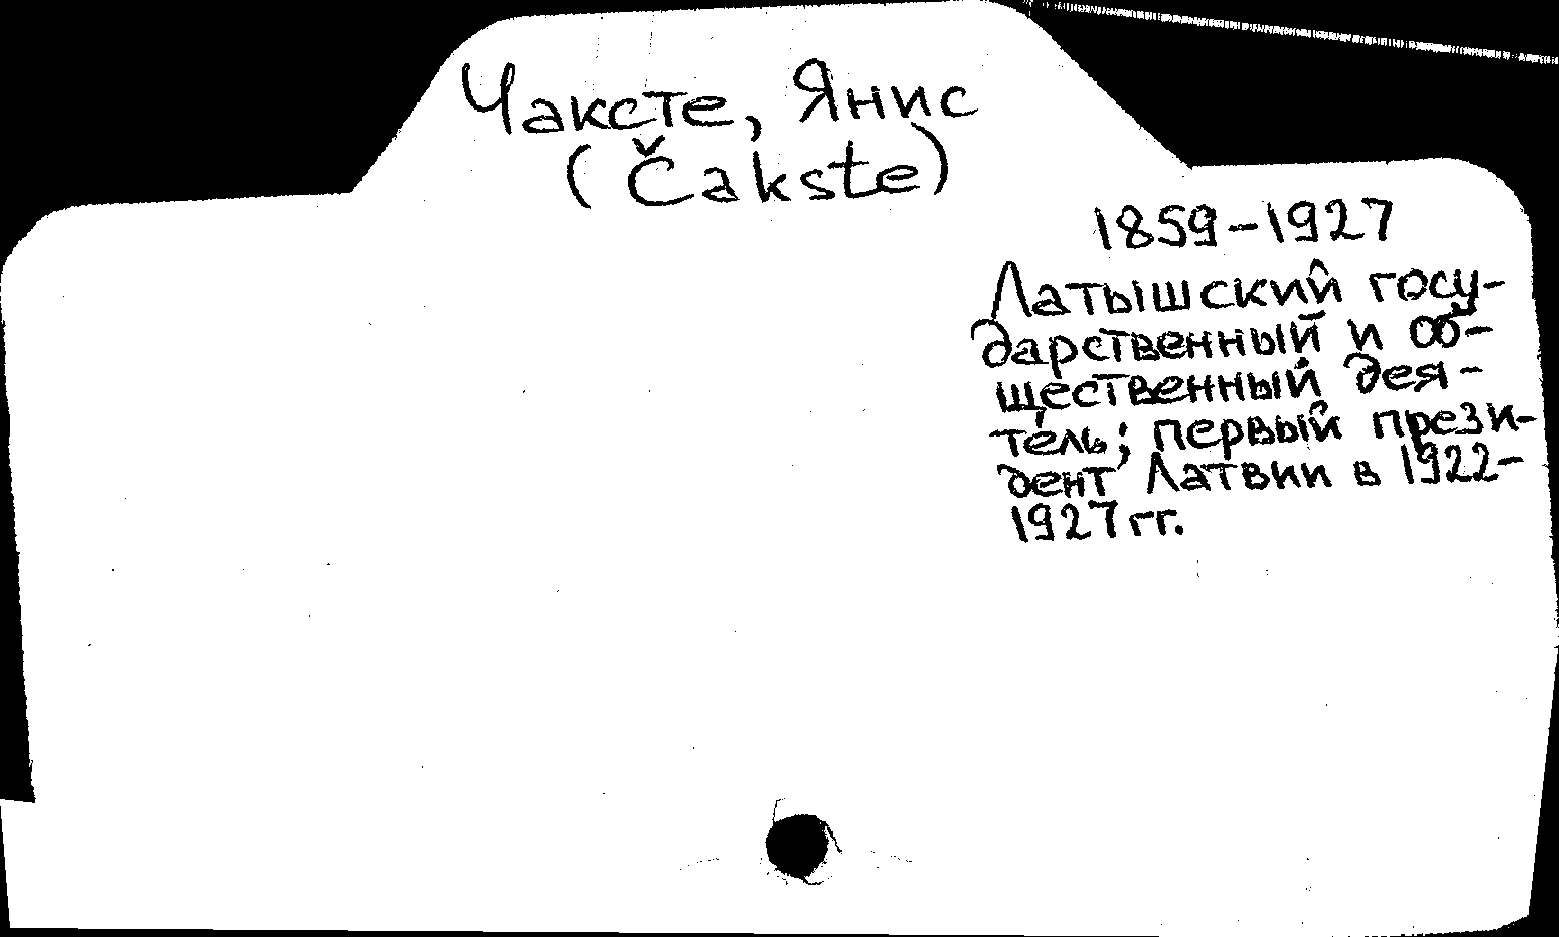 Чаксте, Янис
(Čakste)
1859-1927
Латышский госу-
дарственный и об-
щественный дея-
тель; первый прези-
дент Латвии в 1922-
1927 гг.